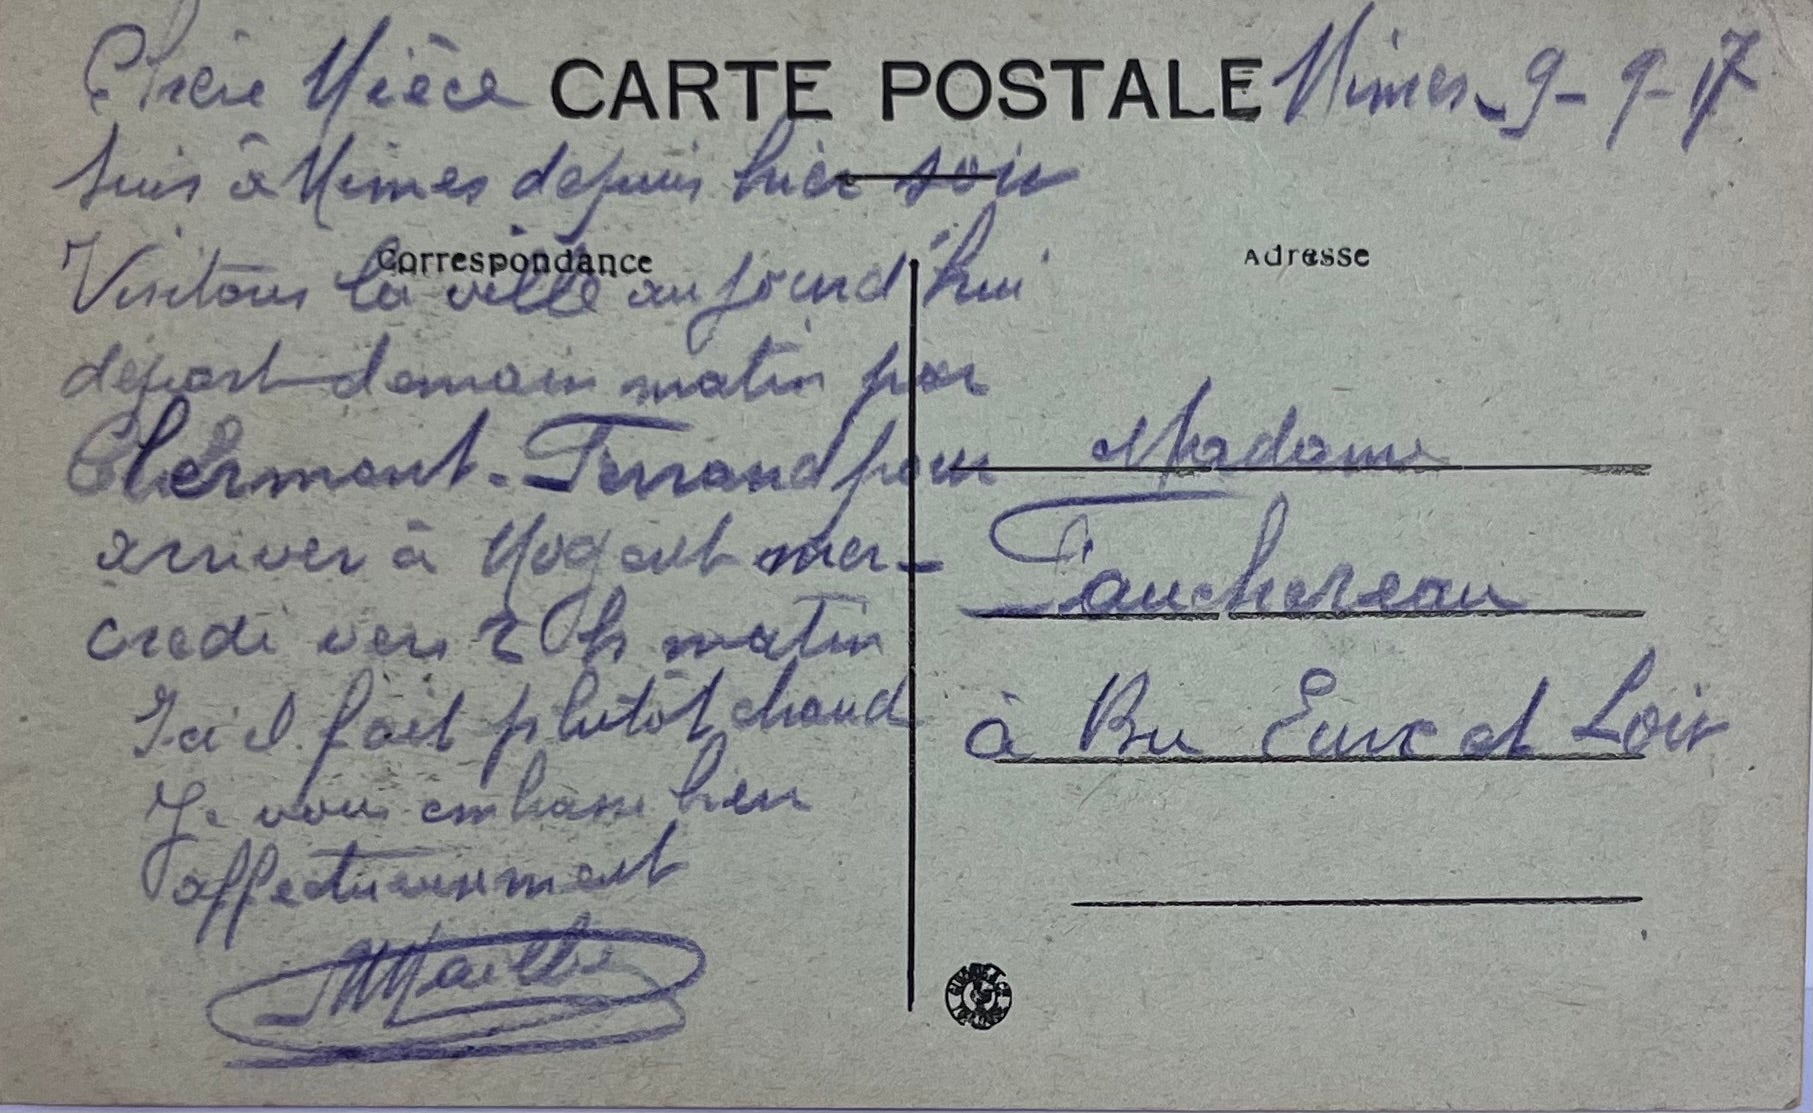 Chère Nièce
CARTE POSTALE
Nimes - 9 - 9 - 17
suis à Nimes depuis hier soir
Correspondance
Adresse
Visitons la ville aujourd'hui
départ demain matin par
Clermont-Ferrand pour
arriver à Nogent mer-
credi vers 2 h matin
Ici il fait plutôt chaud
Je vous embrasse bien
affectueusement
Madame
Fauchereau
à Bu Eure et Loir